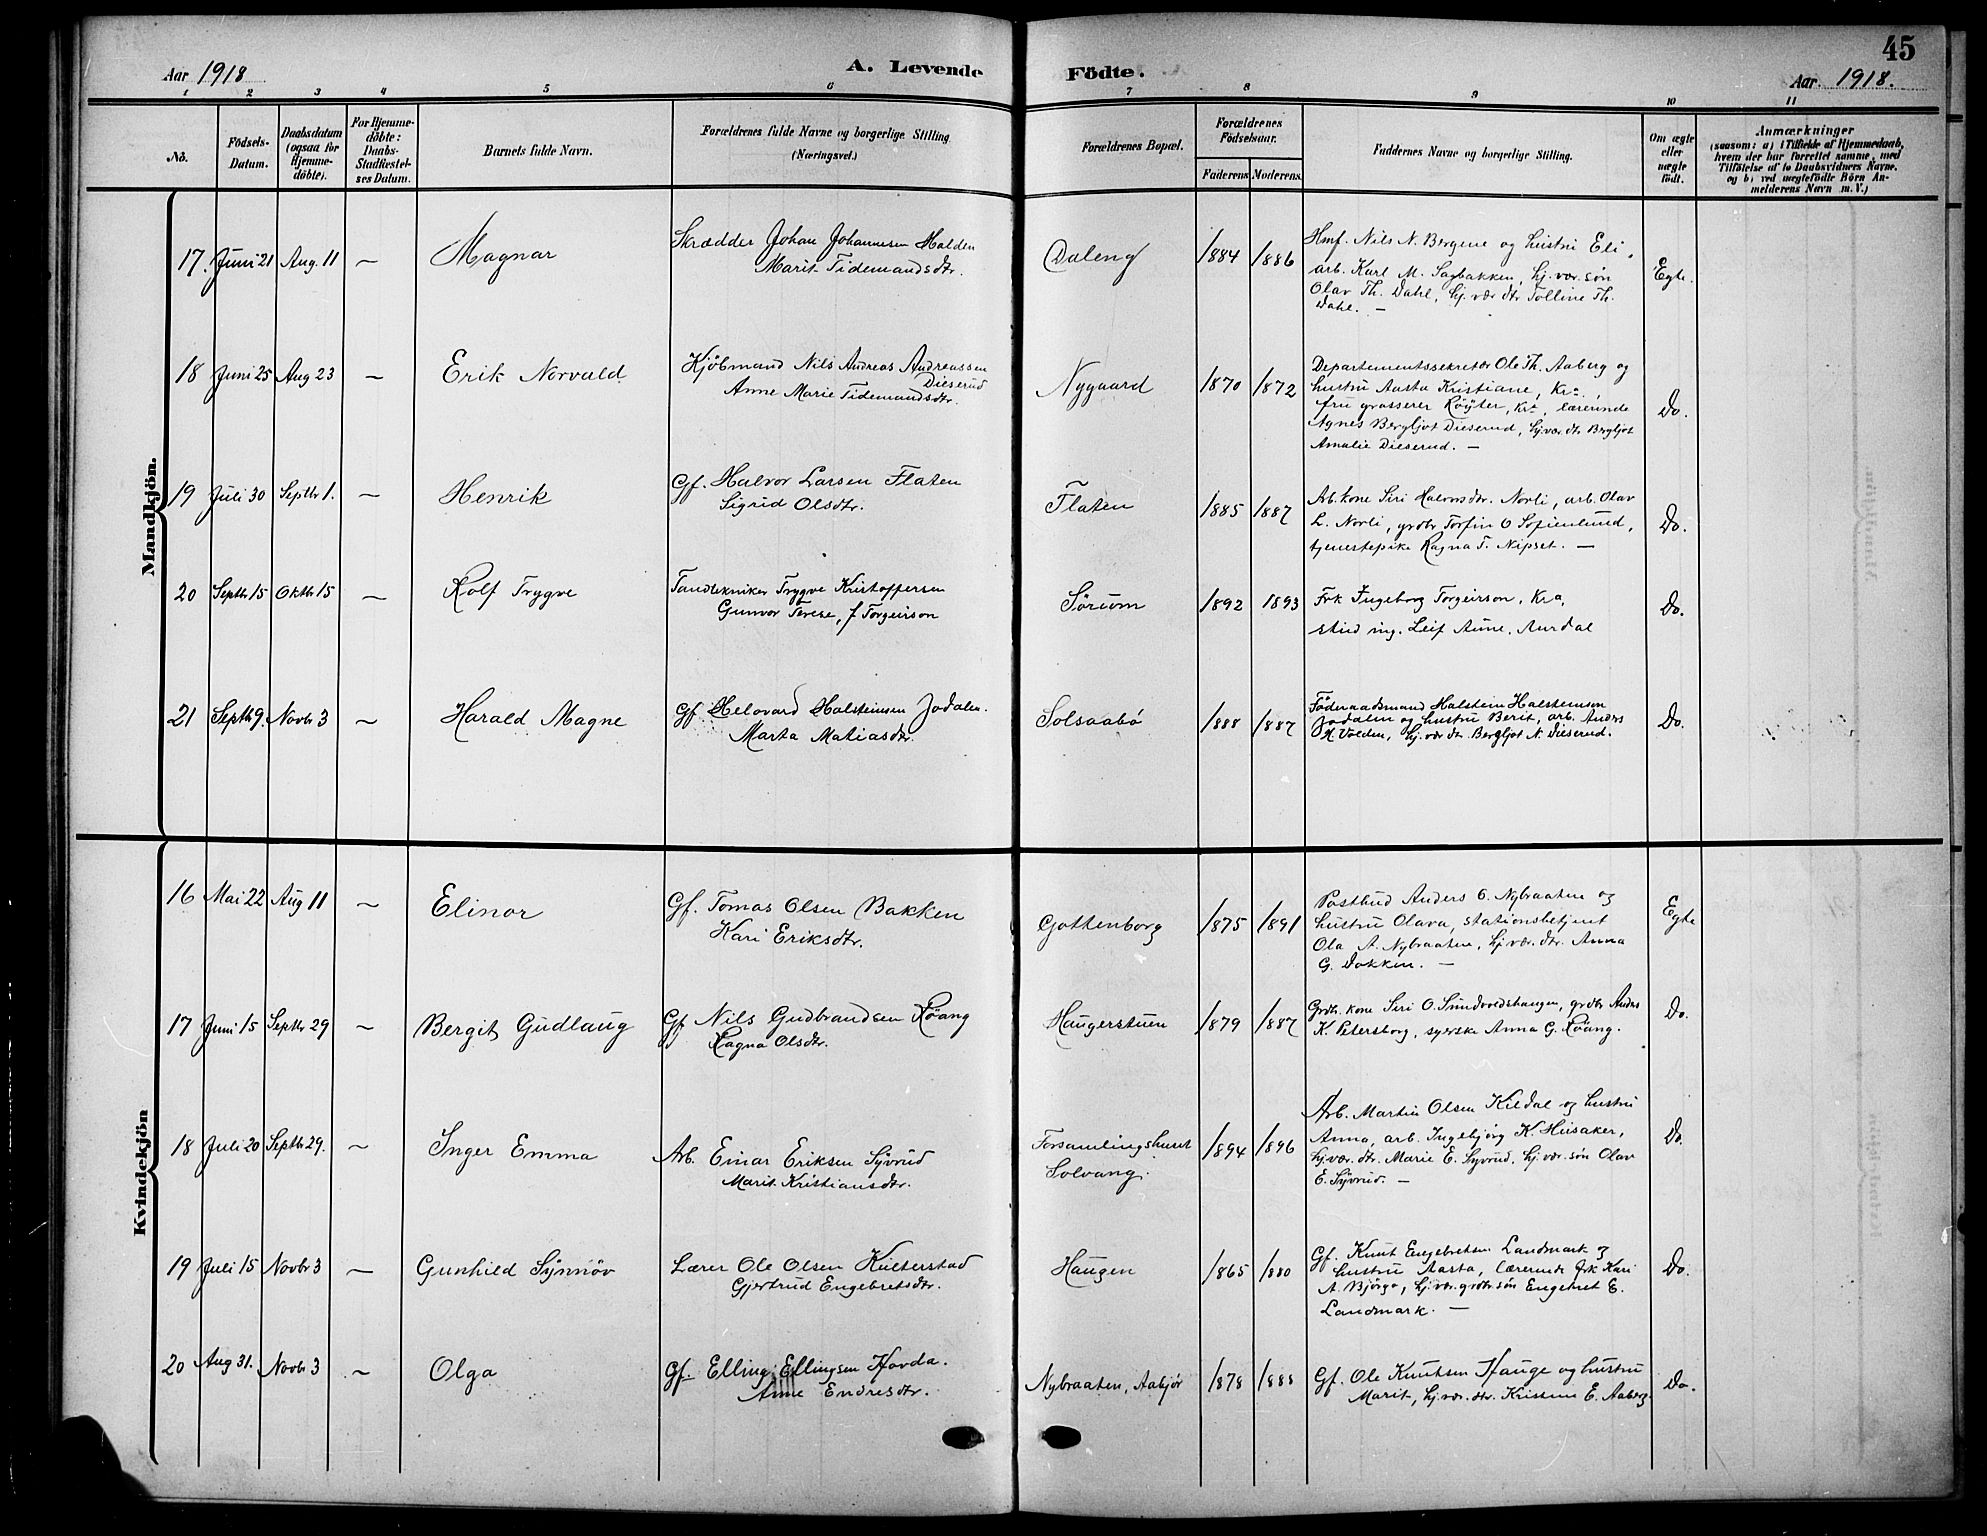 45
Aar 1918
A. Levende
Födte.
Aar 1918.
1 2 3 4 5 6 7 8 9 10 11
No.
Födsels-
Datum.
Daabsdatum
(ogsaa for
Hjemme-
döbte).
For Hjemme-
döbte:
Daabs-
Stadfæstel-
ses Datum.
Barnets fulde Navn.
Forældrenes fulde Navne og borgerlige Stilling
(Næringsvei.)
Forældrenes Bopæl.
Forældrenes
Födselsaar.
Faderens
Moderens.
Faddernes Navne og borgerlige Stilling.
Om ægte
eller
uægte
födt.
Anmærkninger
(saasom: a) i Tilfælde af Hjemmedaab,
hvem der har forrettet samme, med
Tilföielse af to Daabsvidners Navne,
og b) ved uægtefödte Börn An-
melderens Navn m. V.)
Mandkjön.
17. Juni 21 Aug. 11 — Magnar
Skrædder Johan Johannesen Halden
Marit Tidemandsdtr.
Daleng 1884 1886
Hmf. Nils N. Bergene og hustru Eli,
arb. Karl M. Sagbakken, hj. vær. søn
Olav Th. Dahl, hj. vær dtr Tolline Th.
Dahl. —
Egte.
18 Juni 25 Aug 23 — Erik Norvald
Kjöbmand Nils Andreas Andreassen
Dieserud
Anne Marie Tidemandsdtr.
Nygaard 1870 1872
Departementssekretær Ole Th. Aaberg og
hustru Aasta Kristiane, Kra.,
fru grosserer Röyter, Kra, lærerinde
Agnes Bergljot Dieserud, hj.vær. dtr Bergljot
Amalie Dieserud. —
Do.
19 Juli 30 Septbr 1. — Henrik
Gf. Halvor Larsen Flaten
Sigrid Olsdtr.
Flaten 1885 1887
Arb. kone Siri Halvorsdtr. Norli, arb. Olav
L. Norli, grdbr Torfin O Sofienlund,
tjenestepike Ragna T. Nipset. —
Do.
20 Septbr 15 Oktbr 15 — Rolf Trygve
Tandtekniker Trygve Kristoffersen
Gunvor Terese, f Torgeirson
Sörum 1892 1893
Frk Ingeborg Torgeirson, Kra,
stud ing. Leif Aune, Aurdal
Do.
21 Septbr 9. Novbr 3 — Harald Magne
Gf. Helovard Halsteinsen Jodalen.
Marta Matiasdtr.
Solsaabö 1888 1887
Föderaadsmand Halstein Halsteinsen
Jodalen og hustru Berit, arb. Anders
M. Volden, hj. vær dtr. Bergljot N. Dieserud.
Do.
Kvindekjön
16 Mai 22 Aug 11 — Elinor
Gf. Tomas Olsen Bakken
Kari Eriksdtr.
Gottenborg 1875 1891
Postbud Anders O. Nybraaten og
hustru Olava, stationsbetjent
Ola A. Nybraaten, hj. vær. dtr. Anna
G. Dokken. —
Egte
17 Juni 15 Septbr 29 — Bergit Gudlaug
Gf Nils Gudbrandsen Röang
Ragna Olsdtr.
Haugerstuen 1879 1887
Grdb. kone Siri O. Sundvoldshaugen, grdbr Anders
K. Petersborg, syerske Anna G. Röang.
Do.
18 Juli 20 Septbr 29. — Inger Emma
Arb. Einar Eriksen Syvrud
Marit Kristiansdtr.
Forsamlingshuset
Solvang. 1894 1896
Arb. Martin Olsen Kildal og hustru
Anna, arb. Ingebjörg K. Husaker,
hj. vær. dtr. Marie E. Syvrud, hj. vær. søn Olav
E. Syvrud. —
Do.
19 Juli 15 Novbr 3 — Gunhild Synnöv
Lærer Ole Olsen Kulterstad
Gjertrud Engebretsdtr.
Haugen 1865 1880
Gf. Knut Engebretsen Landmark og
hustru Aasta, lærerinde frk Kari
A. Björgo, hj. vær. grdbr. søn Engebret E.
Landmark. —
Do.
20 Aug 31. Novbr 3 — Olga
Gf. Elling Ellingsen Hovda.
Anne Endresdtr.
Nybraaten, Aabjör 1878 1888
Gf. Ole Knutsen Hauge og hustru
Marit, hj. vær. dtr. Kristine E. Aaberg
Do.